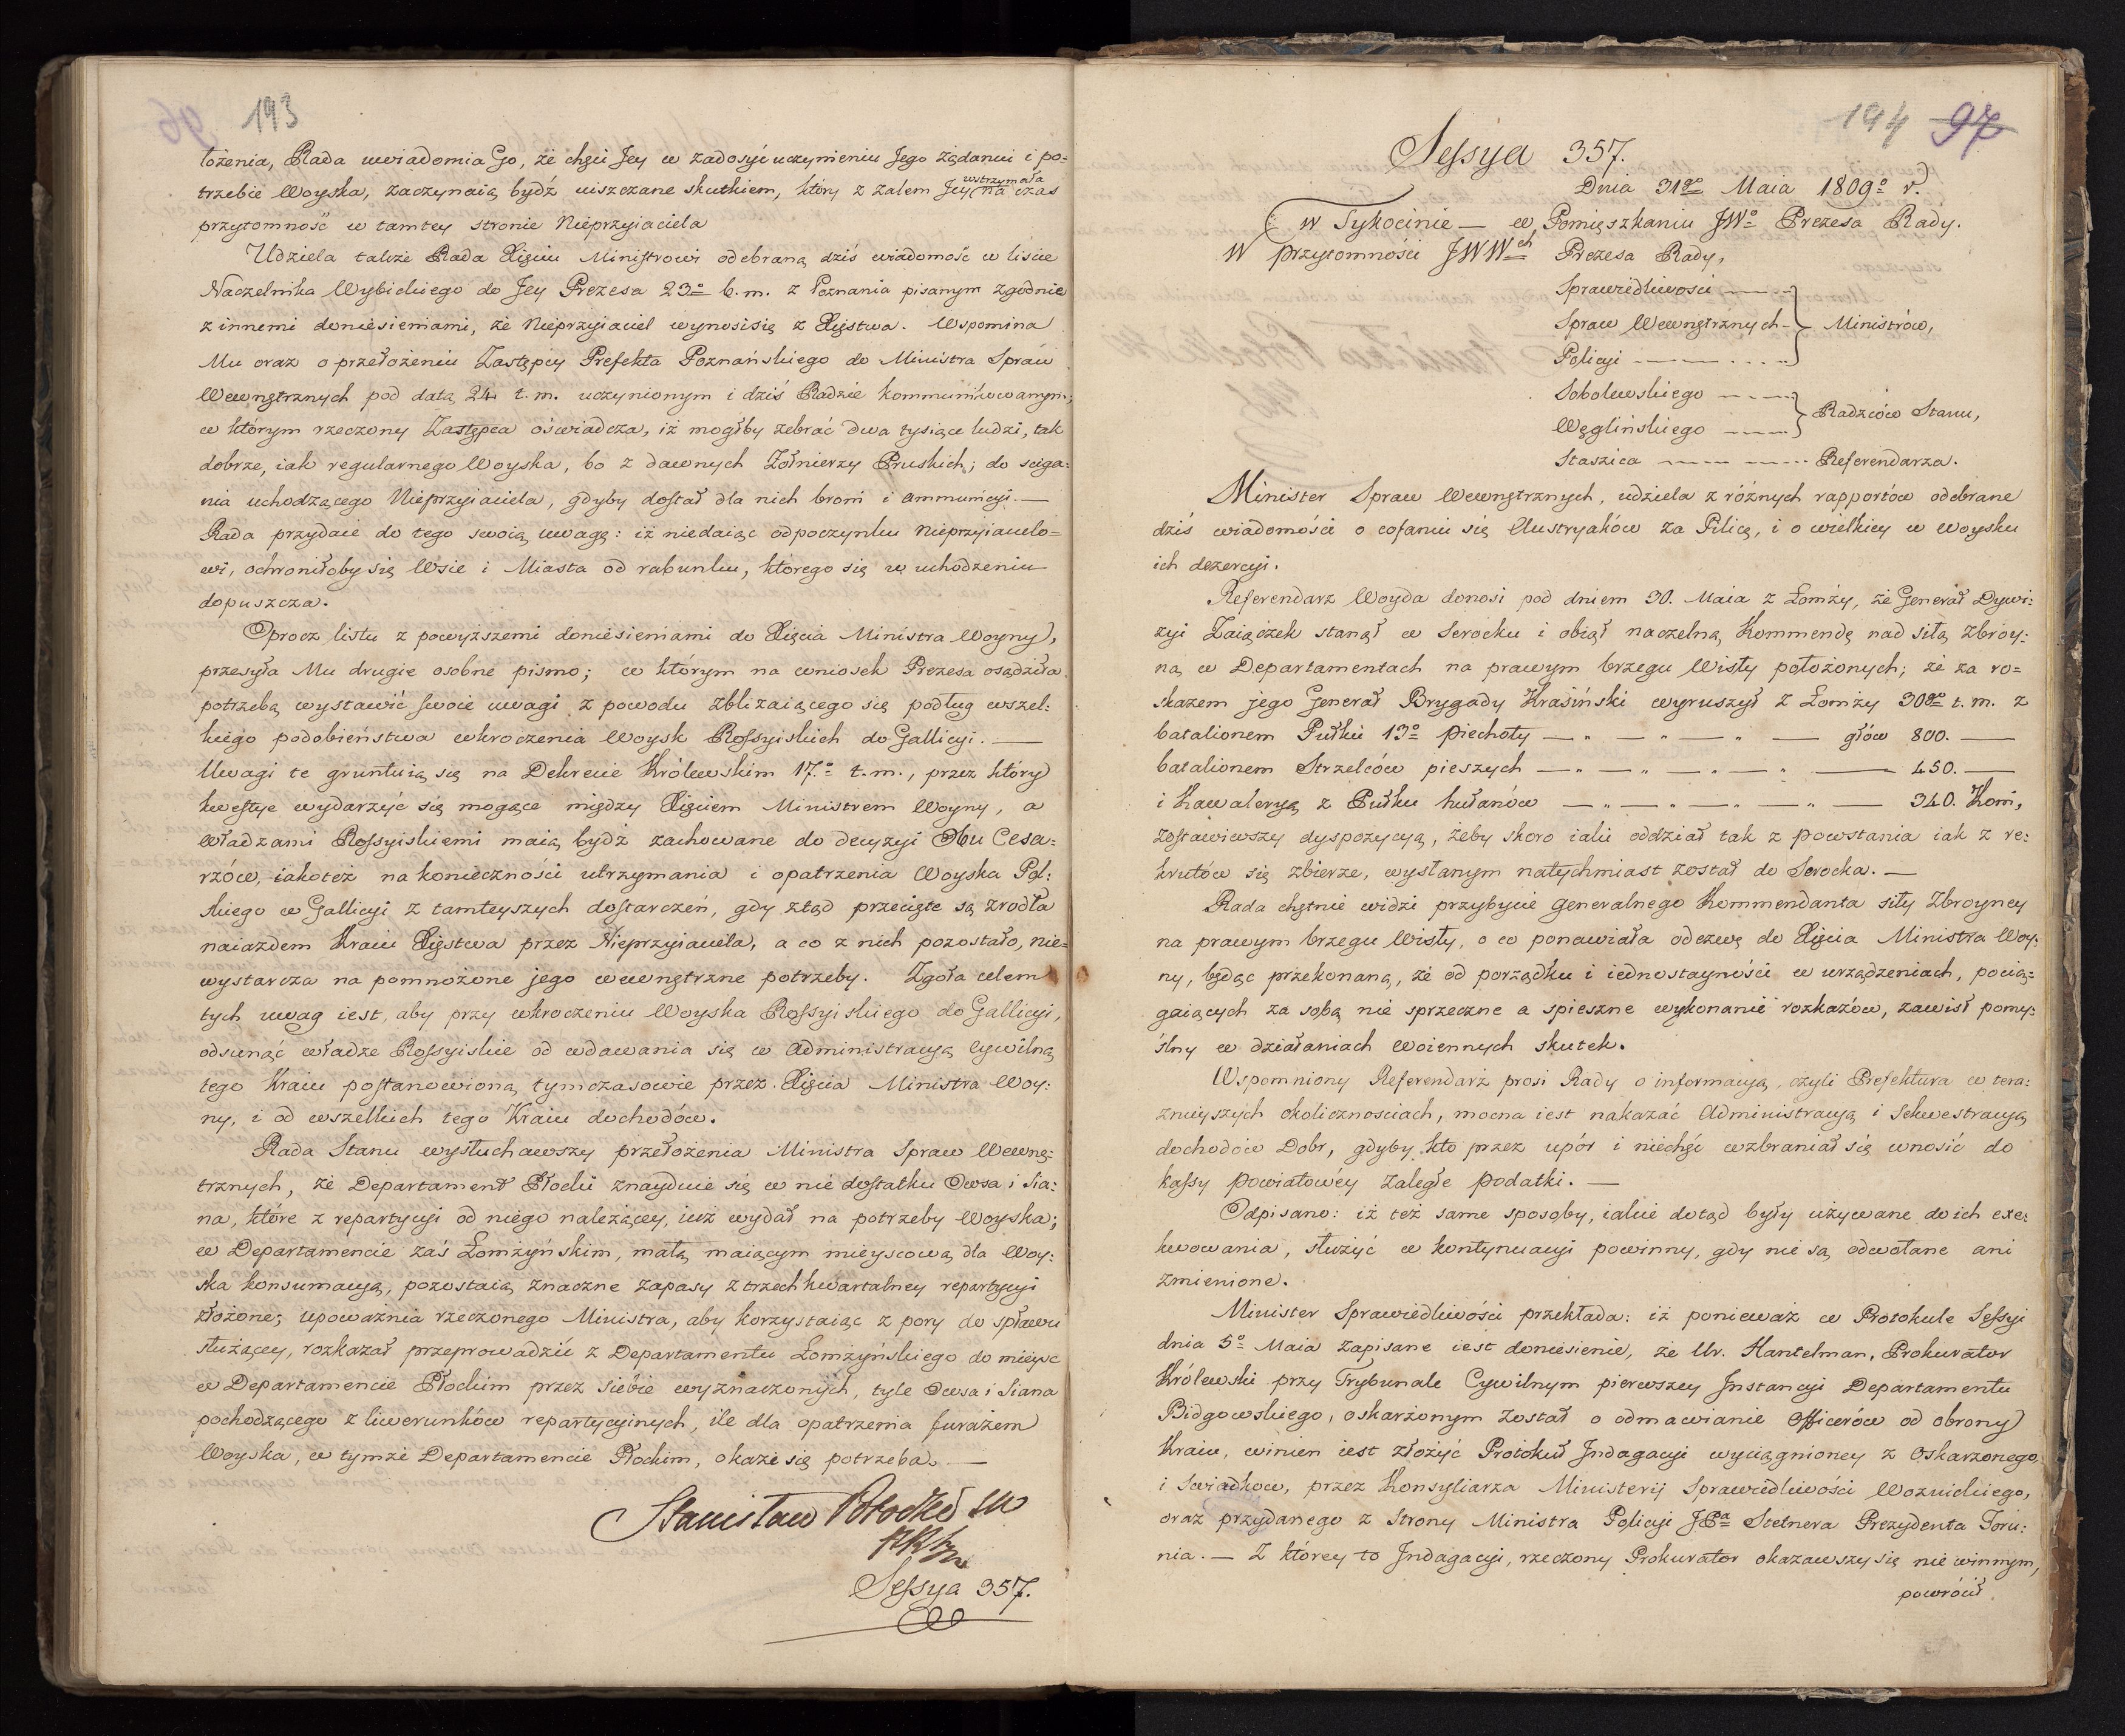 193
łożenia, Rada uwiadomia Go, że chęci Jey w zadosyć uczynieniu Jego żądaniu i po=
trzebie Woyska, zaczynaią bydź uiszczane skutkiem, który z żalem Jey wstrzymała na czas
przytomność w tamtey stronie Nieprzyiaciela
Udziela także Rada Xięciu Ministrowi odebraną dziś wiadomość w liście
Naczelnika Wybickiego do Jey Prezesa 23º b. m. z Poznania pisanym zgodnie
z innemi doniesieniami, że Nieprzyiaciel wynosi się z Xięstwa. Wspomina
Mu oraz o przełożeniu Zastępcy Prefekta Poznańskiego do Ministra Spraw
Wewnętrznych pod datą 24 t. m. uczynionym i dziś Radzie kommunikowanym,
w którym rzeczony Zastępca oświadcza, iż mógłby zebrać dwa tysiące ludzi, tak
dobrze, iak regularnego Woyska, bo z dawnych Żołnierzy Pruskich; do sciga=
nia uchodzącego Nieprzyiaciela, gdyby dostał dla nich broni i ammunicyi. —
Rada przydaie do tego swoią uwagę: iż niedaiąc odpoczynku Nieprzyiacielo=
wi, ochroniłoby się Wsie i Miasta od rabunku, którego się w uchodzeniu
dopuszcza.
Oprocz listu z powyższemi doniesieniami do Xięcia Ministra Woyny,
przesyła Mu drugie osobne pismo; w którym na wniosek Prezesa osądziła
potrzebą wystawić swoie uwagi z powodu zbliżaiącego się podług wszel=
kiego podobieństwa wkroczenia Woysk Rossyiskich do Gallicyi. —
Uwagi te gruntuią się na Dekrecie Królewskim 17.º t. m., przez który
kwestye wydarzyć się mogące między Xięciem Ministrem Woyny, a
Władzami Rossyiskiemi maią bydź zachowane do decyzyi Obu Cesa=
rzów, iakoteż na konieczności utrzymania i opatrzenia Woyska Pol=
skiego w Gallicyi z tamteyszych dostarczeń, gdy ztąd przecięte są zrodła
naiazdem Kraiu Xięstwa przez Nieprzyiaciela, a co z nich pozostało, nie=
wystarcza na pomnożone jego wewnętrzne potrzeby. Zgoła celem
tych uwag iest, aby przy wkroczeniu Woyska Rossyiskiego do Gallicyi,
odsunąć władze Rossyiskie od wdawania się w Administracyą cywilną
tego Kraiu postanowioną tymczasowie przez Xięcia Ministra Woy=
ny, i od wszelkich tego Kraiu dochodów.
Rada Stanu wysłuchawszy przełożenia Ministra Spraw Wewnę=
trznych, że Departament Płocki znayduie się w nie dostatku Owsa i Sia=
na, które z repartycyi od niego należącey, iuż wydał na potrzeby Woyska;
w Departamencie zaś Łomżyńskim, małą maiącym mieyscową dla Woy=
ska konsumacyą, pozostaią znaczne zapasy z trzech kwartalney repartycyi
złożone; upoważnia rzeczonego Ministra, aby korzystaiąc z pory do spławu
służącey, rozkazał przeprowadzić z Departamentu Łomżyńskiego do mieysc
w Departamencie Płockim przez siebie wyznaczonych, tyle Owsa i Siana
pochodzącego z liwerunków repartycyinych, ile dla opatrzenia furażem
Woyska, w tymże Departamencie Płockim, okaże się potrzeba. —
Stanisław Potocki
Sessya 357.
194 97
Sessya 357.
Dnia 31go Maia 1809º r.
w Tykocinie — w Pomięszkaniu JWº Prezesa Rady.
W przytomności JWWch Prezesa Rady,
Sprawiedliwości
Spraw Wewnętrznych Ministrów,
Policyi
Sobolewskiego
Węglińskiego Radzców Stanu,
Staszica Referendarza.
Minister Spraw Wewnętrznych, udziela z różnych rapportów odebrane
dziś wiadomości o cofaniu się Austryaków za Pilicę, i o wielkiey w woysku
ich dezercyi.
Referendarz Woyda donosi pod dniem 30. Maia z Łomży, że Generał Dywi=
zyi Zaiączek stanął w Serocku i obiął naczelną Kommendę nad siłą zbroy=
ną w Departamentach na prawym brzegu Wisły położonych; że za ro=
skazem jego Generał Brygady Krasiński wyruszył z Łomży 30go t. m. z
batalionem Pułku 13º piechoty — „ — „ — „ — głów 800. —
batalionem Strzelców pieszych — „ — „ — „ — „ — 450. —
i Kawaleryą z Pułku hułanów — „ — „ — „ — „ — 340. Koni,
zostawiwszy dyspozycyą, żeby skoro iaki oddział tak z powstania iak z re=
krutów się zbierze, wysłanym natychmiast został do Serocka. —
Rada chętnie widzi przybycie generalnego Kommendanta siły zbroyney
na prawym brzegu Wisły, o co ponawiała odezwę do Xięcia Ministra Woy=
ny, będąc przekonaną, że od porządku i iednostayności w urządzeniach, pocią=
gaiących za sobą nie sprzeczne a spieszne wykonanie rozkazów, zawisł pomy=
ślny w działaniach woiennych skutek.
Wspomniony Referendarz prosi Rady o informacyą, czyli Prefektura w tera=
znieyszych okolicznościach, mocna iest nakazać Administracyą i Sekwestracyą
dochodów Dobr, gdyby kto przez upór i niechęć wzbraniał się wnosić do
kassy powiatowéy zaległe podatki. —
Odpisano: iż też same sposoby, iakie dotąd były używane do ich exe=
kwowania, służyć w kontynuacyi powinny, gdy nie są odwołane ani
zmienione.
Minister Sprawiedliwości przekłada: iż ponieważ w Protokule Sessyi
dnia 5º Maia zapisane iest doniesienie, że Ur. Hantelman, Prokurator
Królewski przy Trybunale Cywilnym pierwszey Instancyi Departamentu
Bidgowskiego, oskarżonym został o odmawianie Officerów od obrony
Kraiu, winien iest złożyć Protokuł Indagacyi wyciągnioney z Oskarżonego
i Swiadkow, przez Konsyliarza Ministerij Sprawiedliwości Woznickiego,
oraz przydanego z Strony Ministra Policyi JPa Stetnera Prezydenta Toru=
nia. — Z którey to Indagacyi, rzeczony Prokurator okazawszy się nie winnym,
powrócił